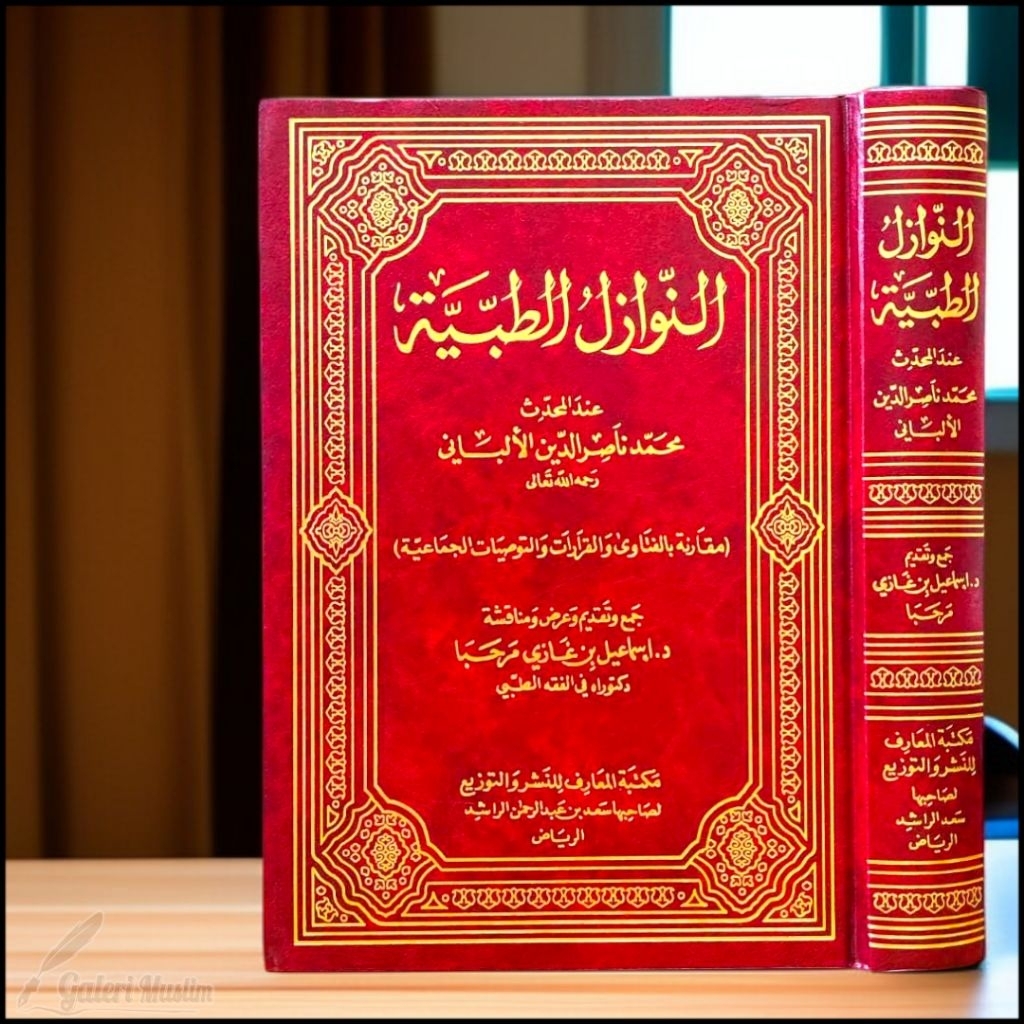 النّوازلُ الطبّيَّة
عندَ المحدّث
محمّد ناصِر الدّين الألبَاني
رَحمه الله تعَالى
(مقَارنة بالفتَاوىٰ وَالقرَارَات وَالتوصيَات الجمَاعيّة)
جَمع وتَقديم وَعرض وَمناقشة
د. إسماعيل بن غَازي مَرحَبَا
دكتوراه في الفقه الطبّي
مَكتبَة المعَارف للنَشر وَالتوزيع
لصَاحبهَا سَعد بن عَبد الرحمٰن الراشِد
الريَاض
النّوازلُ
الطبّيَّة
عندَ المحدّث
محمّد ناصِر الدّين
الألبَاني
جَمع وتَقديم
د. إسماعيل بن غَازي
مَرحَبَا
مَكتبَة المعَارف
للنَشر وَالتوزيع
لصَاحبهَا
سَعد الراشِد
الريَاض
Galeri Muslim